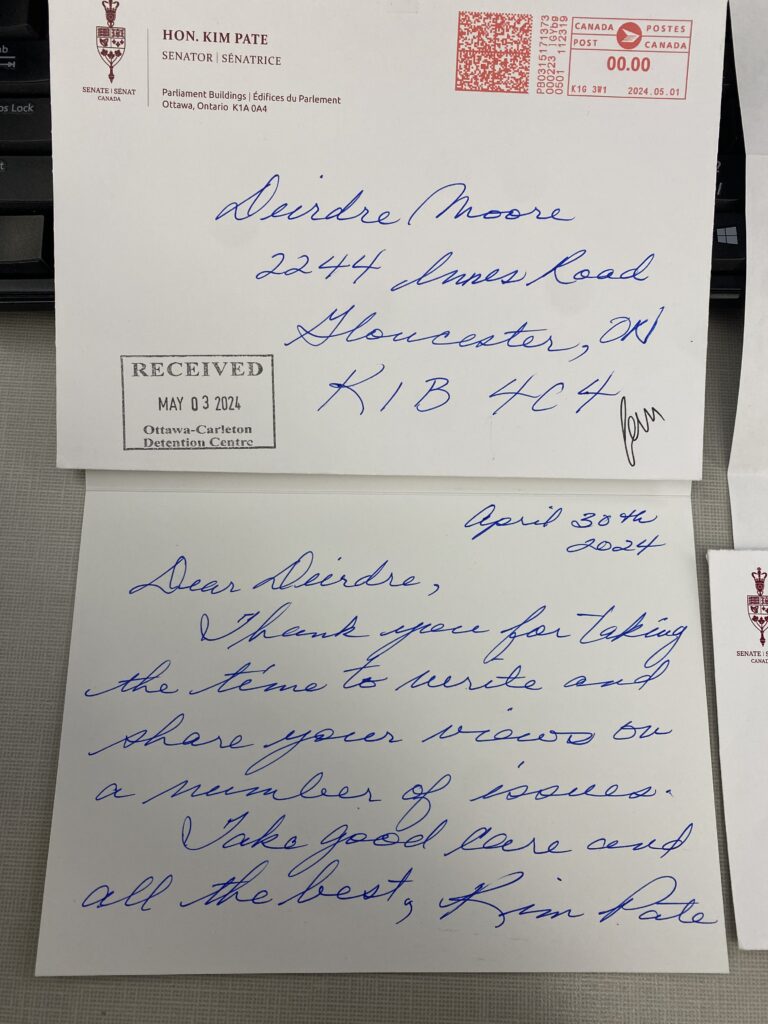 HON. KIM PATE
SENATOR | SÉNATRICE
SENATE | SÉNAT
CANADA
Parliament Buildings | Édifices du Parlement
Ottawa, Ontario K1A 0A4
PB0315171373
000223
0501 112319
CANADA POSTES
POST CANADA
00.00
K1G 3W1 2024.05.01
Deirdre Moore
2244 Innes Road
Gloucester, ON
K1B 4C4
RECEIVED
MAY 03 2024
Ottawa-Carleton
Detention Centre
April 30th
2024
Dear Deirdre,
Thank you for taking
the time to write and
share your views on
a number of issues.
Take good care and
all the best, Kim Pate
Lock